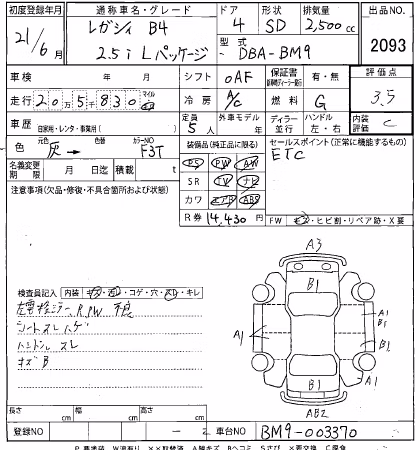 初度登録年月 通称車名・グレード ドア 形状 排気量 出品NO
21/6月 レガシィ B4 4 SD 2,500cc
2.5i Lパッケージ 型式 DBA-BM9 2093
車検 年 月 シフト OAF 保証書 有・無 評価点
走行 20万5千830 マイル 冷房 A/C 燃料 G 3.5
車歴 自家用・レンタ・事業用( ) 定員 5人 外車モデル 年 ディーラー 並行 ハンドル 左・右 内装 C
色 元色 灰→ 色替 カラーNO F3T 装備品(純正品に限る) セールスポイント(正常に機能するもの)
名義変更期限 月 日迄 積載 t PS PW AW ETC
注意事項(欠品・修復・不具合箇所および状態) SR TV ナビ
カワ エアB ABS
R券 14,430円 FW キズ・ヒビ割・リペア跡・X要
A3
B1
検査員記入 内装 キズ・汚レ・コゲ・穴・スレ・キレ
A1 A1 B1
シートスレ ハゲ
ハンドルスレ
キズB
A1 A1
B1
AB2
長さ cm 幅 cm 高さ cm
登録NO 車台NO BM9-003370